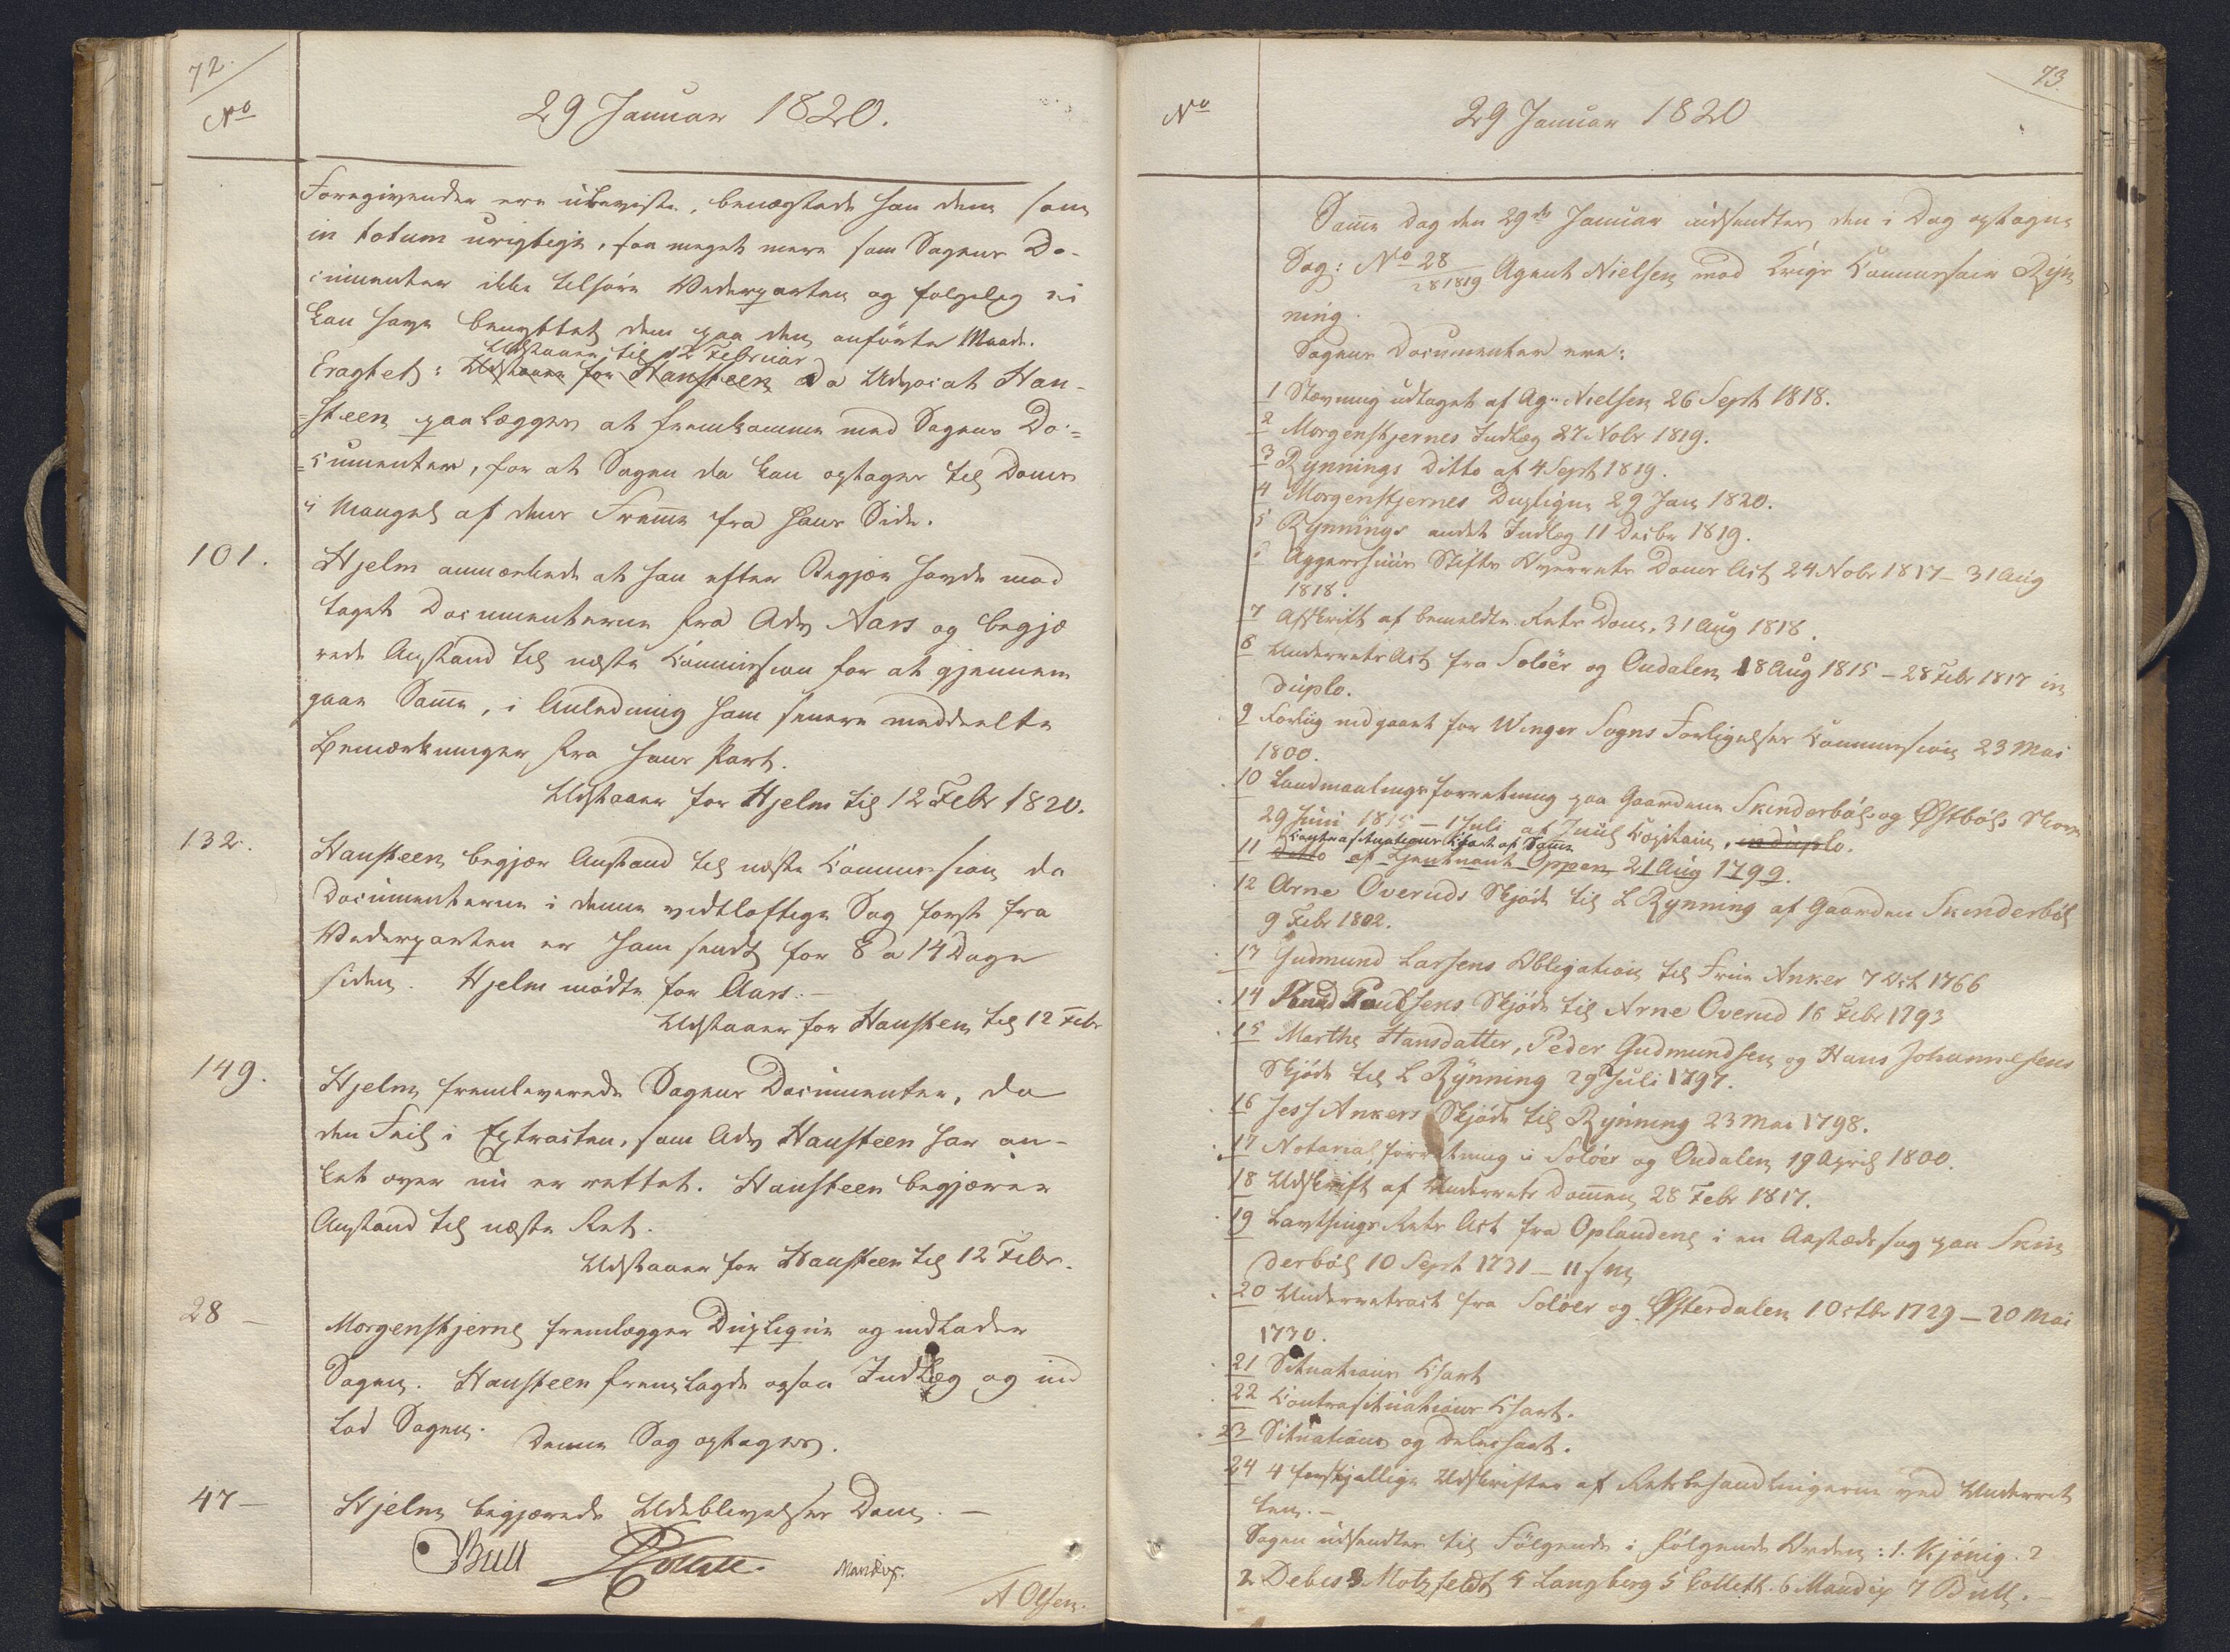 72.
No
29 Januar 1820.
Foregivender ere ubeviste, benægtede han dem som
in totum urigtige, saa meget mere som Sagens Do-
cumenter ikke tilhøre Vederparten og følgelig ei
kan have benyttet dem paa den anførte Maade.
Udstaaer til 12 Februar
Eragtet: Udstaaer for Hansteen da Advocat Han-
steen paalægges at fremkomme med Sagens Do-
cumenter, for at Sagen da kan optages til Doms
i Mangel af deres Fremme fra hans Side.
101.
Hjelm anmærkede at han efter Begjær havde mod
taget Documenterne fra Adv Aars og begjæ
rede Anstand til næste Commission for at gjennem
gaae Samme, i Anledning ham senere meddeelte
Bemærkninger fra hans Part.
Udstaaer for Hjelm til 12 Febr 1820.
132.
Hansteen begjær Anstand til næste Commission da
Documenterne i denne vidtløftige Sag først fra
Vederparten er ham sendt for 8 a 14 Dage
siden. Hjelm mødte for Aars.—
Udstaaer for Hansteen til 12 Febr
149.
Hjelm fremleverede Sagens Documenter, da
den Feil i Extracten, som Adv Hansteen har an-
ket over nu er rettet. Hansteen begjærer
Anstand til næste Ret.
Udstaaer for Hansteen til 12 Febr.
28 —
Morgenstjerne fremlægger Dupliqve og indlader
Sagen. Hansteen fremlagde ogsaa Indlæg og ind
lod Sagen. Denne Sag optages.
47 —
Hjelm begjærede Udeblivelses Dom. —
Bull Collett. Mandix.
A Olsen.
73.
No
29 Januar 1820
Samme Dag den 29de Januar udsendtes den i Dag optagne
Sag: No 28/28 1819 Agent Nielsen mod Krigs Commissair Ryn
ning.
Sagens Documenter ere:
1 Stævning udtaget af Ag. Nielsen 26 Sept 1818.
2 Morgenstjernes Indlæg 27 Nobr 1819.
3 Rynnings Ditto af 4 Sept 1819.
4 Morgenstjernes Dupliqve 29 Jan 1820.
5 Rynnings andet Indlæg 11 Decbr 1819.
6 Aggershuus Stifts Overrets Doms Act 24 Nobr 1817 — 31 Aug
1818.
7 Afskrift af bemeldte Rets Dom, 31 Aug 1818.
8 Underrets Act fra Soløer og Oudalen 18 Aug 1815 — 28 Febr 1817 in
duplo.
9 Forliig indgaaet for Winger Sogns Forligelses Commission 23 Mai
1800.
10 Landmaalingsforretning paa Gaardene Skinderbøl og Østbøls Skove
29 Juni 1815 — 1 Juli af Juul Capitain, in duplo.
Contrasituations Chart af Samme
11 Ditto af Lieutnant Oppen 21 Aug 1799.
12 Arne Overuds Skjøde til L Rynning af Gaarden Skinderbøl
9 Febr 1802.
13 Gudmund Larsens Obligation til Frue Anker 7 Oct 1766
14 Knud Poulsens Skjøde til Arne Overud 16 Febr 1793
15 Marthe Hansdatter, Peder Gudmundsen og Hans Johannesens
Skjøde til L Rynning 29 Juli 1797.
16 Jess Ankers Skjøde til Rynning 23 Mai 1798.
17 Notarial forretning i Soløer og Oudalen 19 April 1800.
18 Udskrift af Underrets Dommen 28 Febr 1817.
19 Lavthings Rets Act fra Oplandene i en Aastæds sag paa Skin
derbøl 10 Sept 1731 — 11 s m
20 Underretsact fra Soløer og Østerdalen 1 Octbr 1729 — 20 Mai
1730.
21 Situations Chart
22 Contrasituations Chart.
23 Situations og Delechart.
24 4 forskjellige Udskrifter af Retsbehandlingerne ved Underret
ten. —
Sagen udsendtes til Følgende i følgende Orden: 1. Kjønig. 2
2 Debes 3 Motzfeldt 4 Langberg 5 Collett. 6 Mandix 7 Bull. —